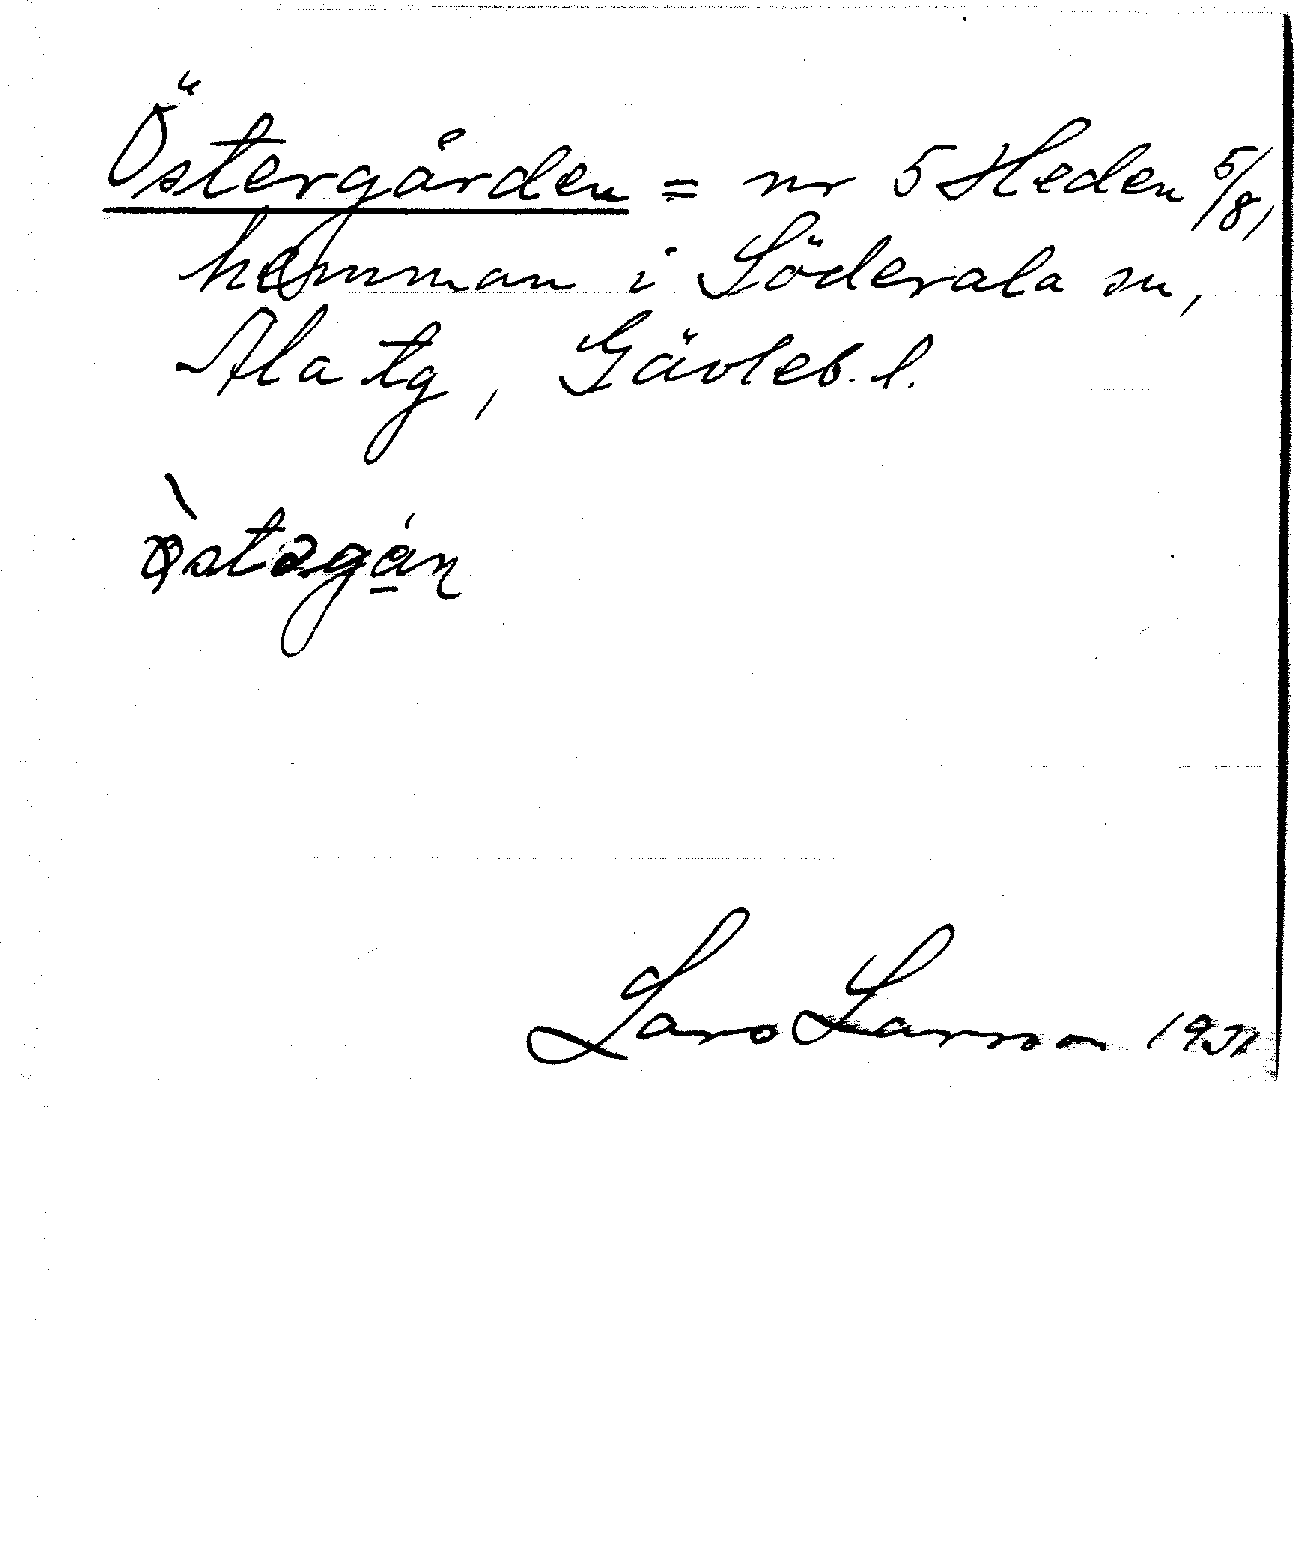 Östergården = nr 5 Heden 5/8,
hemman i Söderala sn,
Ala tg, Gävleb. l.
Lars Larsson